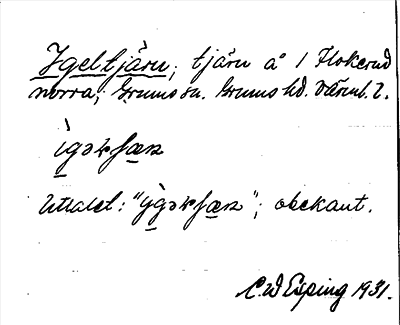 Igeltjärn, tjärn å 1 Flokerud
norra, Grums sn. Grums hd. Värml. l.
Uttalet: " "; obekant.
C. W Esping 1931.